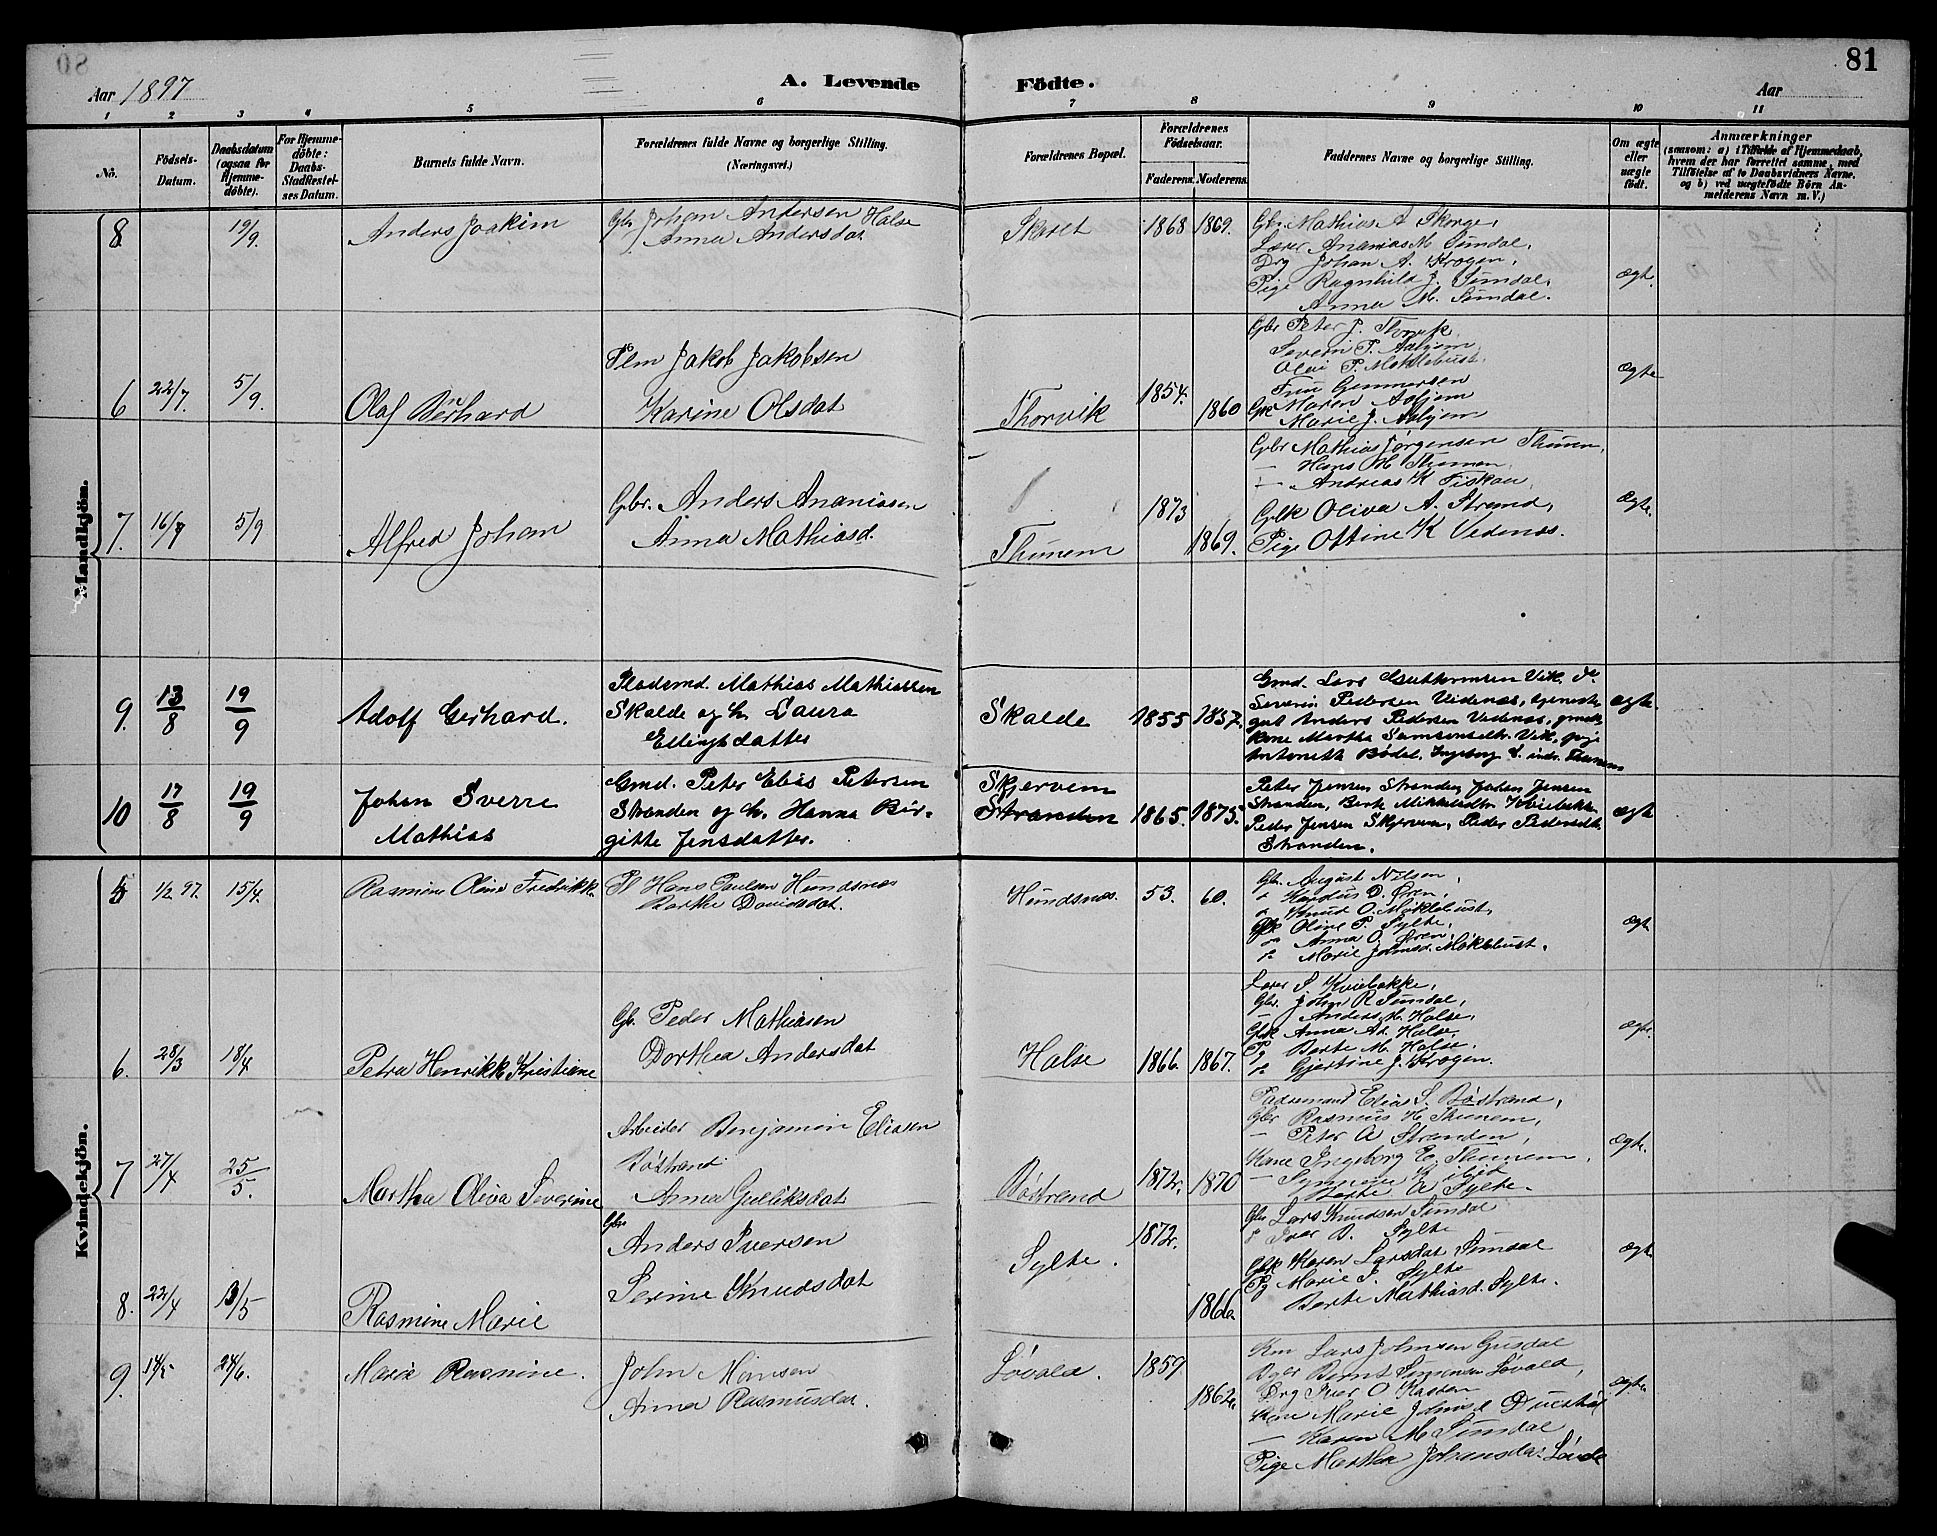 81
Aar 1897
A. Levende Födte.
Aar
1 2 3 4 5 6 7 8 9 10 11
No.
Födsels-Datum.
Daabsdatum (ogsaa for Hjemme-döbte).
For Hjemme-döbte: Daabs-Stadfæstel-ses Datum.
Barnets fulde Navn.
Forældrenes fulde Navne og borgerlige Stilling. (Næringsvei.)
Forældrenes Bopæl.
Forældrenes Födselsaar.
Faderens. Moderens.
Faddernes Navne og borgerlige Stilling.
Om ægte eller uægte födt.
Anmærkninger
(saasom: a) i Tilfælde af Hjemmedaab, hvem der har forrettet samme, med Tilföielse af to Daabsvidners Navne. og b) ved uægtefödte Börn An-melderens Navn m. V.)
Mandkjön.
8
19/9.
Anders Joakim
Gbr Johan Andersen Halse
Anna Andersdat
Skaret
1868 1869.
Gbr Mathias A Skorge,
Lærer Ananias M Sundal,
Drg Johan A. Krogen,
Pige Ragnhild J. Sundal,
Anna M. Sundal.
ægte.
6
22/7.
5/9.
Olaf Bernhard
Plm Jakob Jakobsen
Karine Olsdat
Thorvik
1854. 1860
Gbr Peter J. Thorvik
Severin P. Aahjem
Olai P. Meklebust.
Fru Gemmersen
Gk Maren Aahjem
Marie J. Aahjem
ægte
7.
16/7
5/9
Alfred Johan
Gbr. Anders Ananiasen
Anna Mathiasd.
Thunem
1873 1869.
Gbr Mathias Jørgensen Thunem,
— Hans M Thunem,
— Andreas K Fiskaa,
Gbk Oliva A. Strand,
Pige Ottine K Vedenæs.
ægte.
9.
13/8
19/9
Adolf Gerhard.
Pladsmd. Mathias Mathiassen
Skalde og h. Laura
Ellingsdatter
Skalde
1855 1857.
Gmd. Lars Guttormsen Vik, do
Severin Pedersen Videnæs, tjeneste
gut Anders Pedersen Vedenæs, gmds
kone Martha Samsonsdtr. Vik, pige
Antonette Bødal, Ingeborg
ægte.
10
17/8
19/9
Johan Sverre
Mathias
Gmd. Peter Elias Petersen
Stranden og h. Hanna Bir-
gitte Jensdatter.
Skjervem
Stranden
1865. 1875.
Peter Jensen Stranden, Johan Jensen
Stranden, Berte Mikkelsdtr. Kviebakke
Peder Jensen Skjervem, Peder Pedersdtr.
Stranden.
ægte
Kvindekjön.
5
1/2 97.
15/4.
Rasmine Oline Fredrikke
Pl Hans Paulsen Hundsnæs
Berthe Davidsdat.
Hundsnæs.
53. 60.
Gbr. August Nilsen,
" Knud O. Meklebust,
Gbk Oline P. Sylte,
" Anna O Øren,
" Marie Johnsd. Meklebust.
ægte
6.
28/3
18/4
Petra Henrikke Kristiane
Gb. Peder Mathiasen
Dorthea Andersdat
Halse
1866. 1867.
Lærer S. Kviebakke,
Gbr. John R Sundal,
— Anders M. Halse,
Gbk Anna Ad. Halse,
Pg Berte M. Halse.
" Gjertine J. Krogen.
ægte.
7
27/4
25/5.
Martha Oliva Severine
Arbeider Benjamin Eliasen
Bøstrand
Anna Guliksdat
Bøstrand
1872. 1870
Pladsemand Elias S. Bøstrand,
Gbr Rasmus H. Thunem,
— Peter A Stranden,
Kone Ingeborg E. Thunem,
Berte A Sylte.
ægte.
8.
22/4
13/5
Rasmine Marie
Gbr Anders Iversen
Serine Knudsdat
Sylte.
1872. 1866
Gbr Lars Knudsen Sundal
" Iver B. Sylte
Gbk Karen Larsdat Sundal
Pg Marie S. Sylte
Berte Mathiasd. Sylte.
ægte
9.
14/5
24/6.
Marie Rasmine.
John Monsen
Anna Rasmusdat.
Løvald.
1859. 1862.
Km Lars Johnsen Gusdal
Bernt Simonsen Løvald,
Drg Iver O Kasten
Kone Marie
— Karen M Sundal
Pige Martha Johansdat.
ægte.